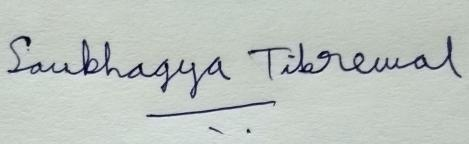 Saubhagya Tibrewal